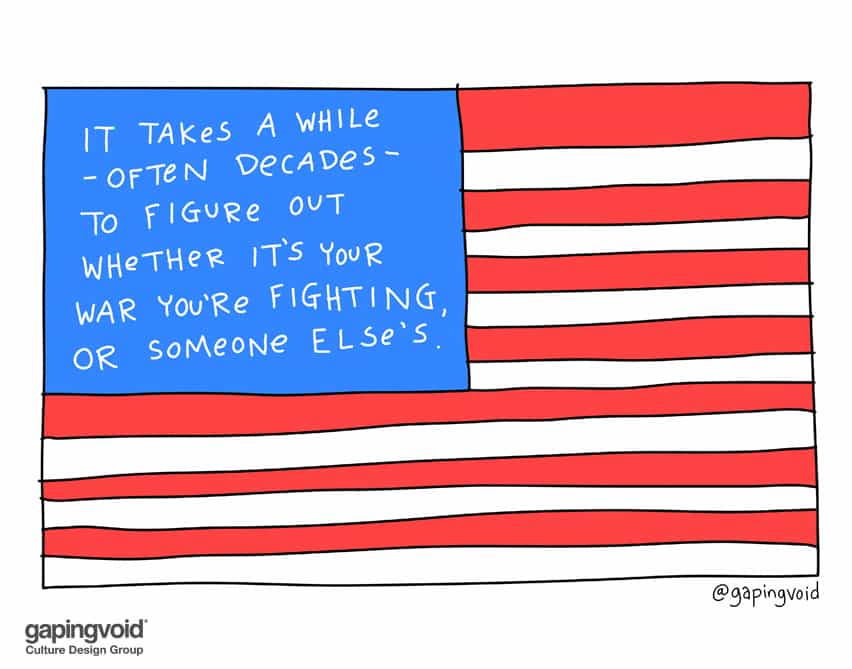 IT TAKeS A WHILe
- OFTeN DeCADeS -
TO FIGURe OUT
WHeTHeR IT'S YOUR
WAR YOU'Re FIGHTING,
OR SOMeONe ELSe'S.
@gapingvoid
gapingvoid®
Culture Design Group